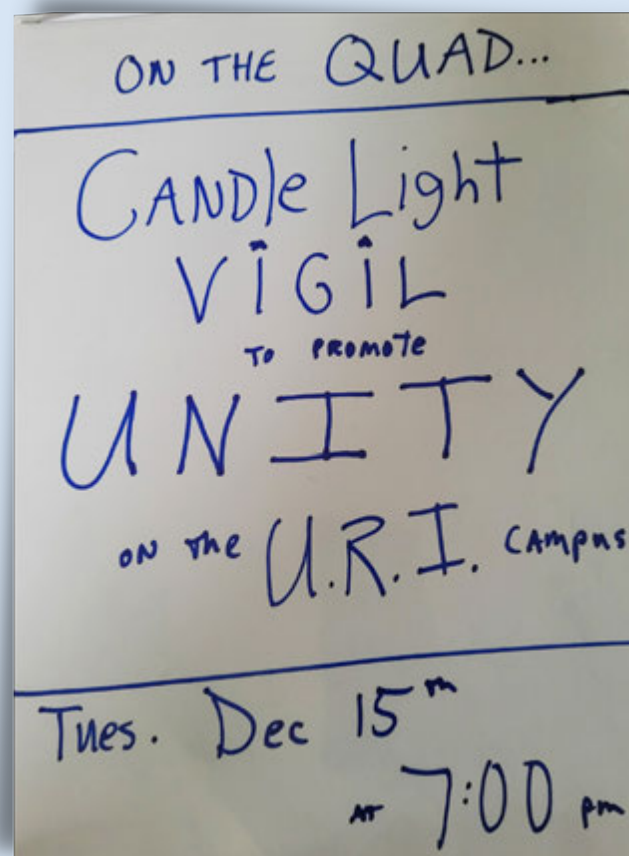 ON THE QUAD...
CANDle Light
VIGIL
TO PROMOTE
UNITY
ON the U.R.I. CAMPUS
Tues. Dec 15th
AT 7:00 pm